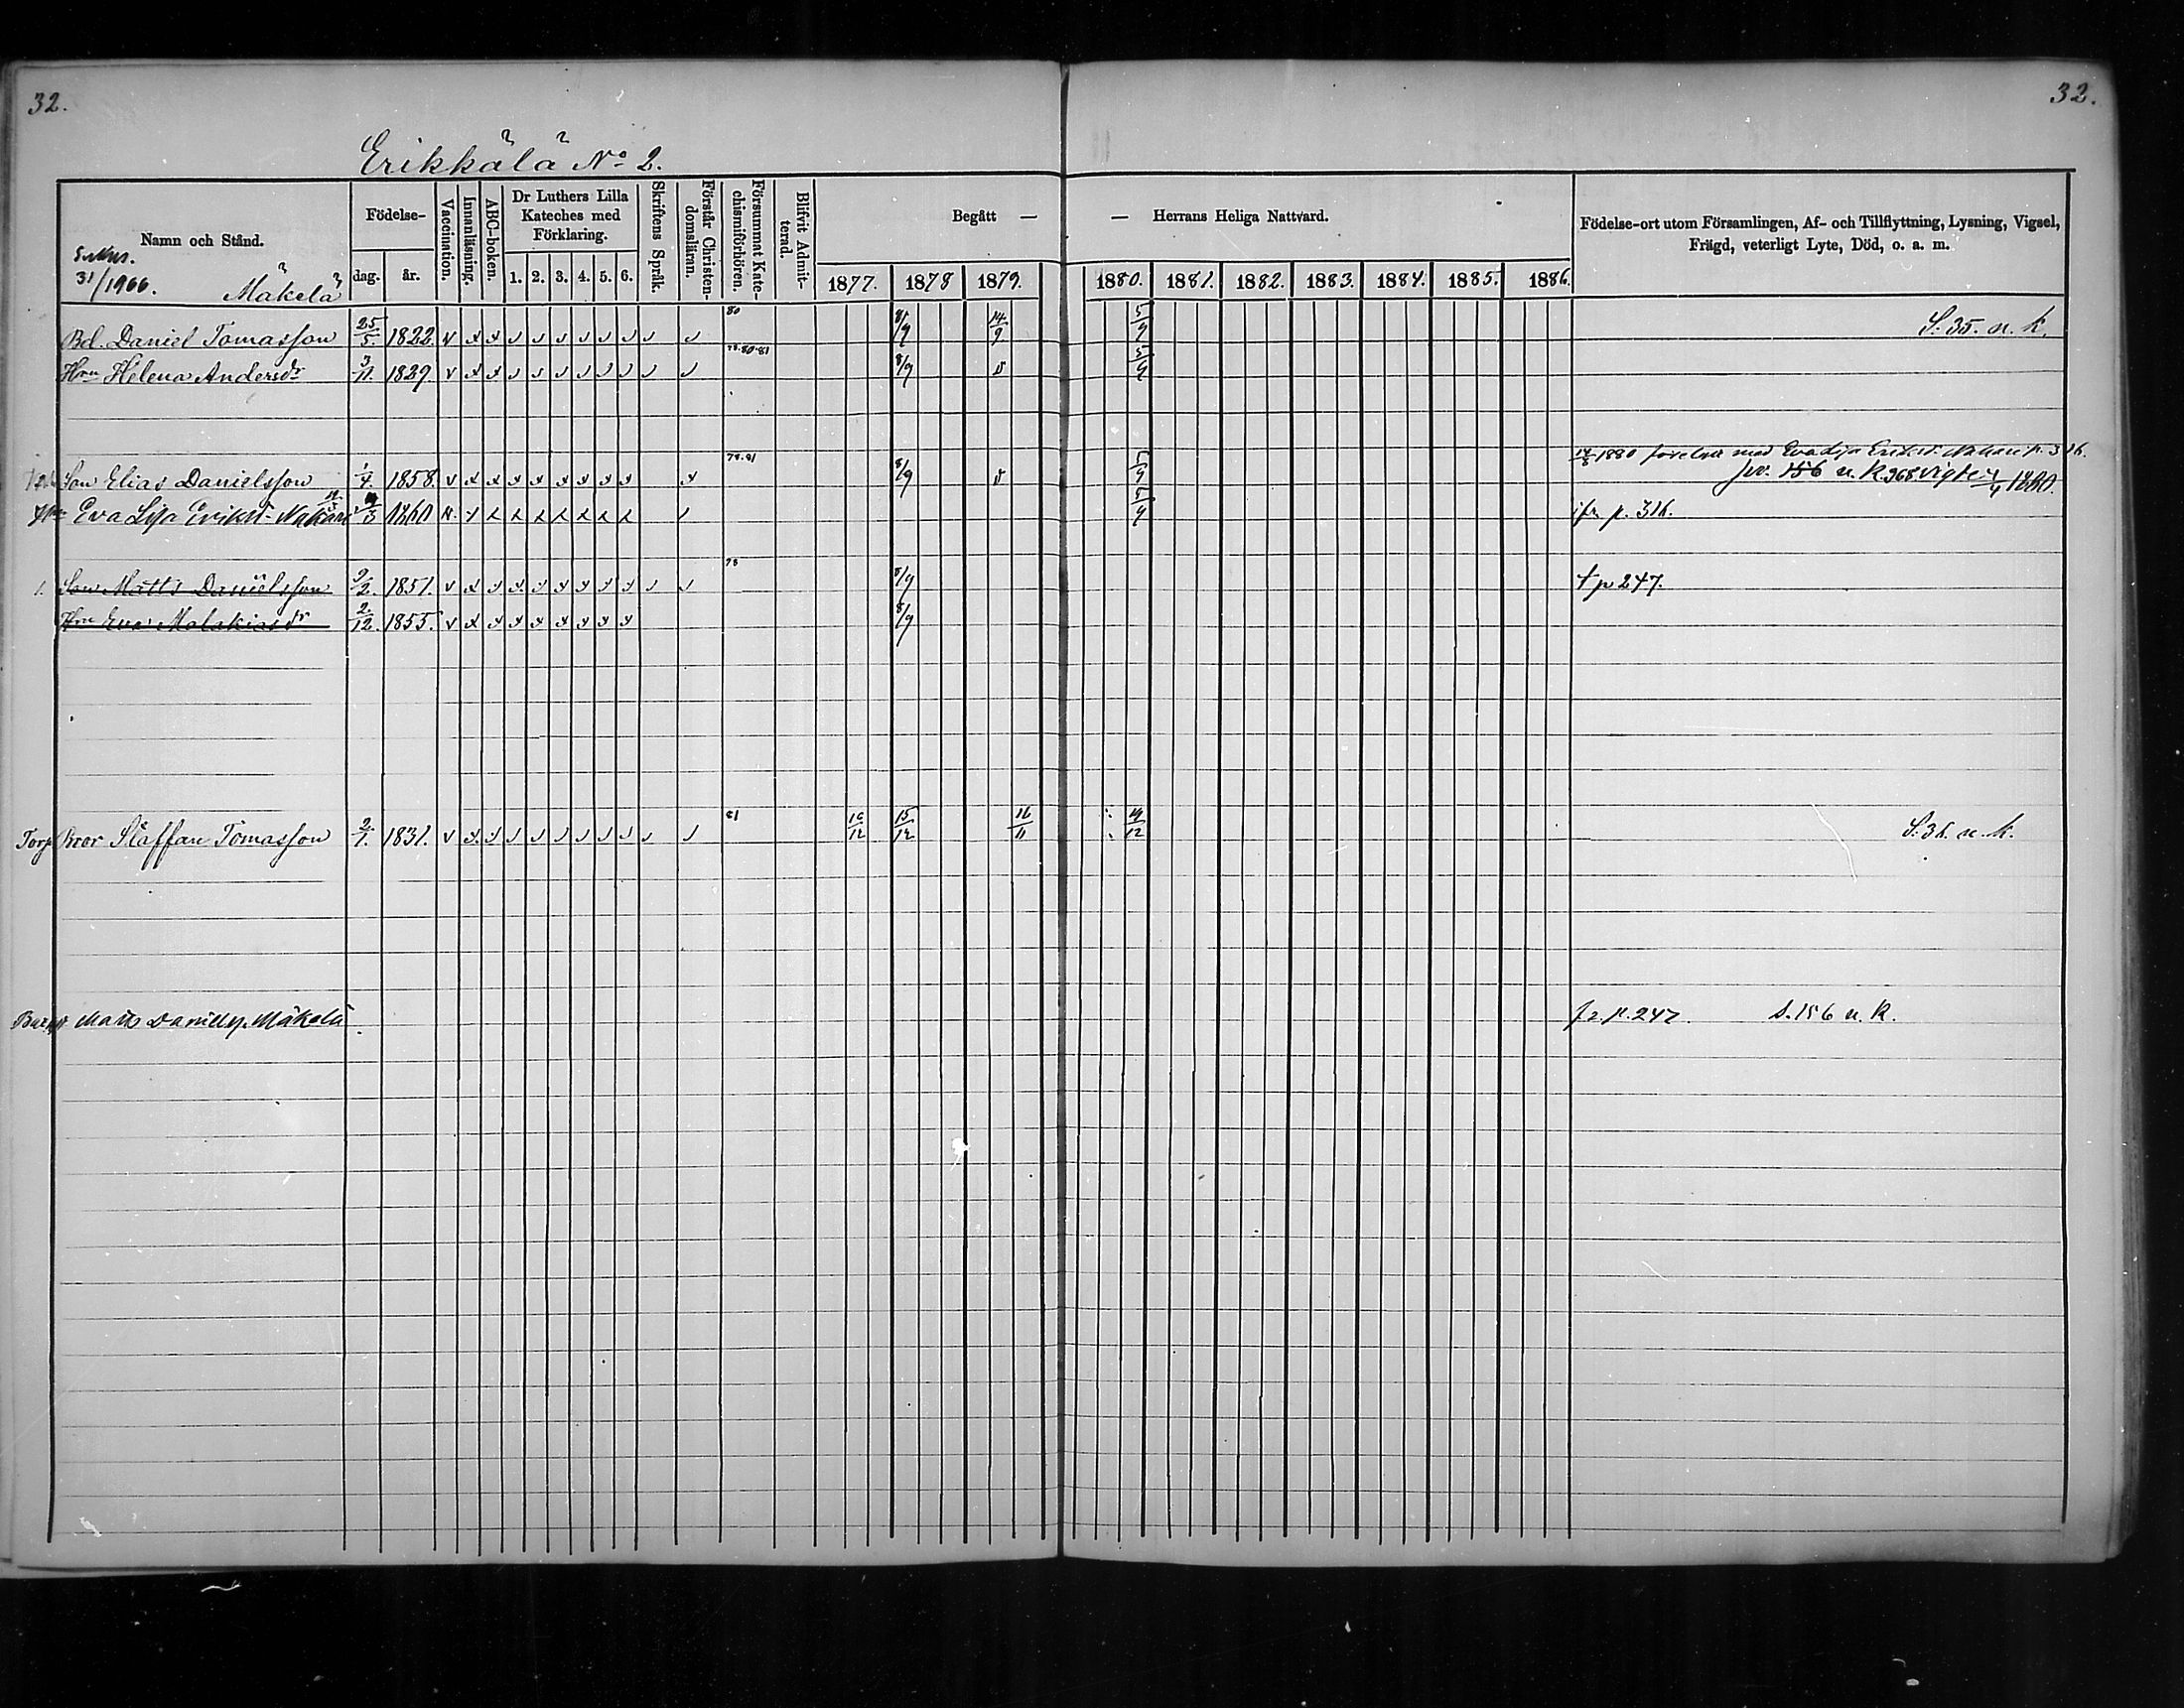 32.
32.
Erikkälä No 2.
Namn och Stånd.
31/1966.
Mäkelä
Födelse-
dag.
år.
Vaccination.
Innanläsning.
ABC-boken.
Dr Luthers Lilla Kateches med Förklaring.
1. 2. 3. 4. 5. 6.
Skriftens Språk.
Förstår Christen-domsläran.
Försummat Kate-chismiförhören.
Blifvit Admit-terad.
Begått —
— Herrans Heliga Nattvard.
1877. 1878 1879. 1880. 1881. 1882. 1883. 1884. 1885. 1886.
Födelse-ort utom Församlingen, Af- och Tillflyttning, Lysning, Vigsel,
Frägd, veterligt Lyte, Död, o. a. m.
Bd. Daniel Tomasson 25/5 1822. 80 8/9 14/9 5/9 S. 35. n. k.
Hru Helena Andersdr 3/11. 1829. 78.80.81 8/9 5/9
1880 med Eva Lisa Eriksd. p. 316.
Son Elias Danielsson 1/4. 1858. 8/9 5/9 156 n. k. 368 vigde 1880.
Eva Lisa Eriksd. 1860 5/9 p. 316.
1. Son Matts Danielsson 9/2. 1851. 78 8/9 t p 247.
Hru Eva Malakiasdr 2/12. 1855. 8/9
Torp Bror Staffan Tomasson 2/1. 1831. 81 16/12 15/12 16/11 19/12 S. 36. n. k.
Matts Daniels. Mäkelä fr. p. 247. s. 156 n. k.